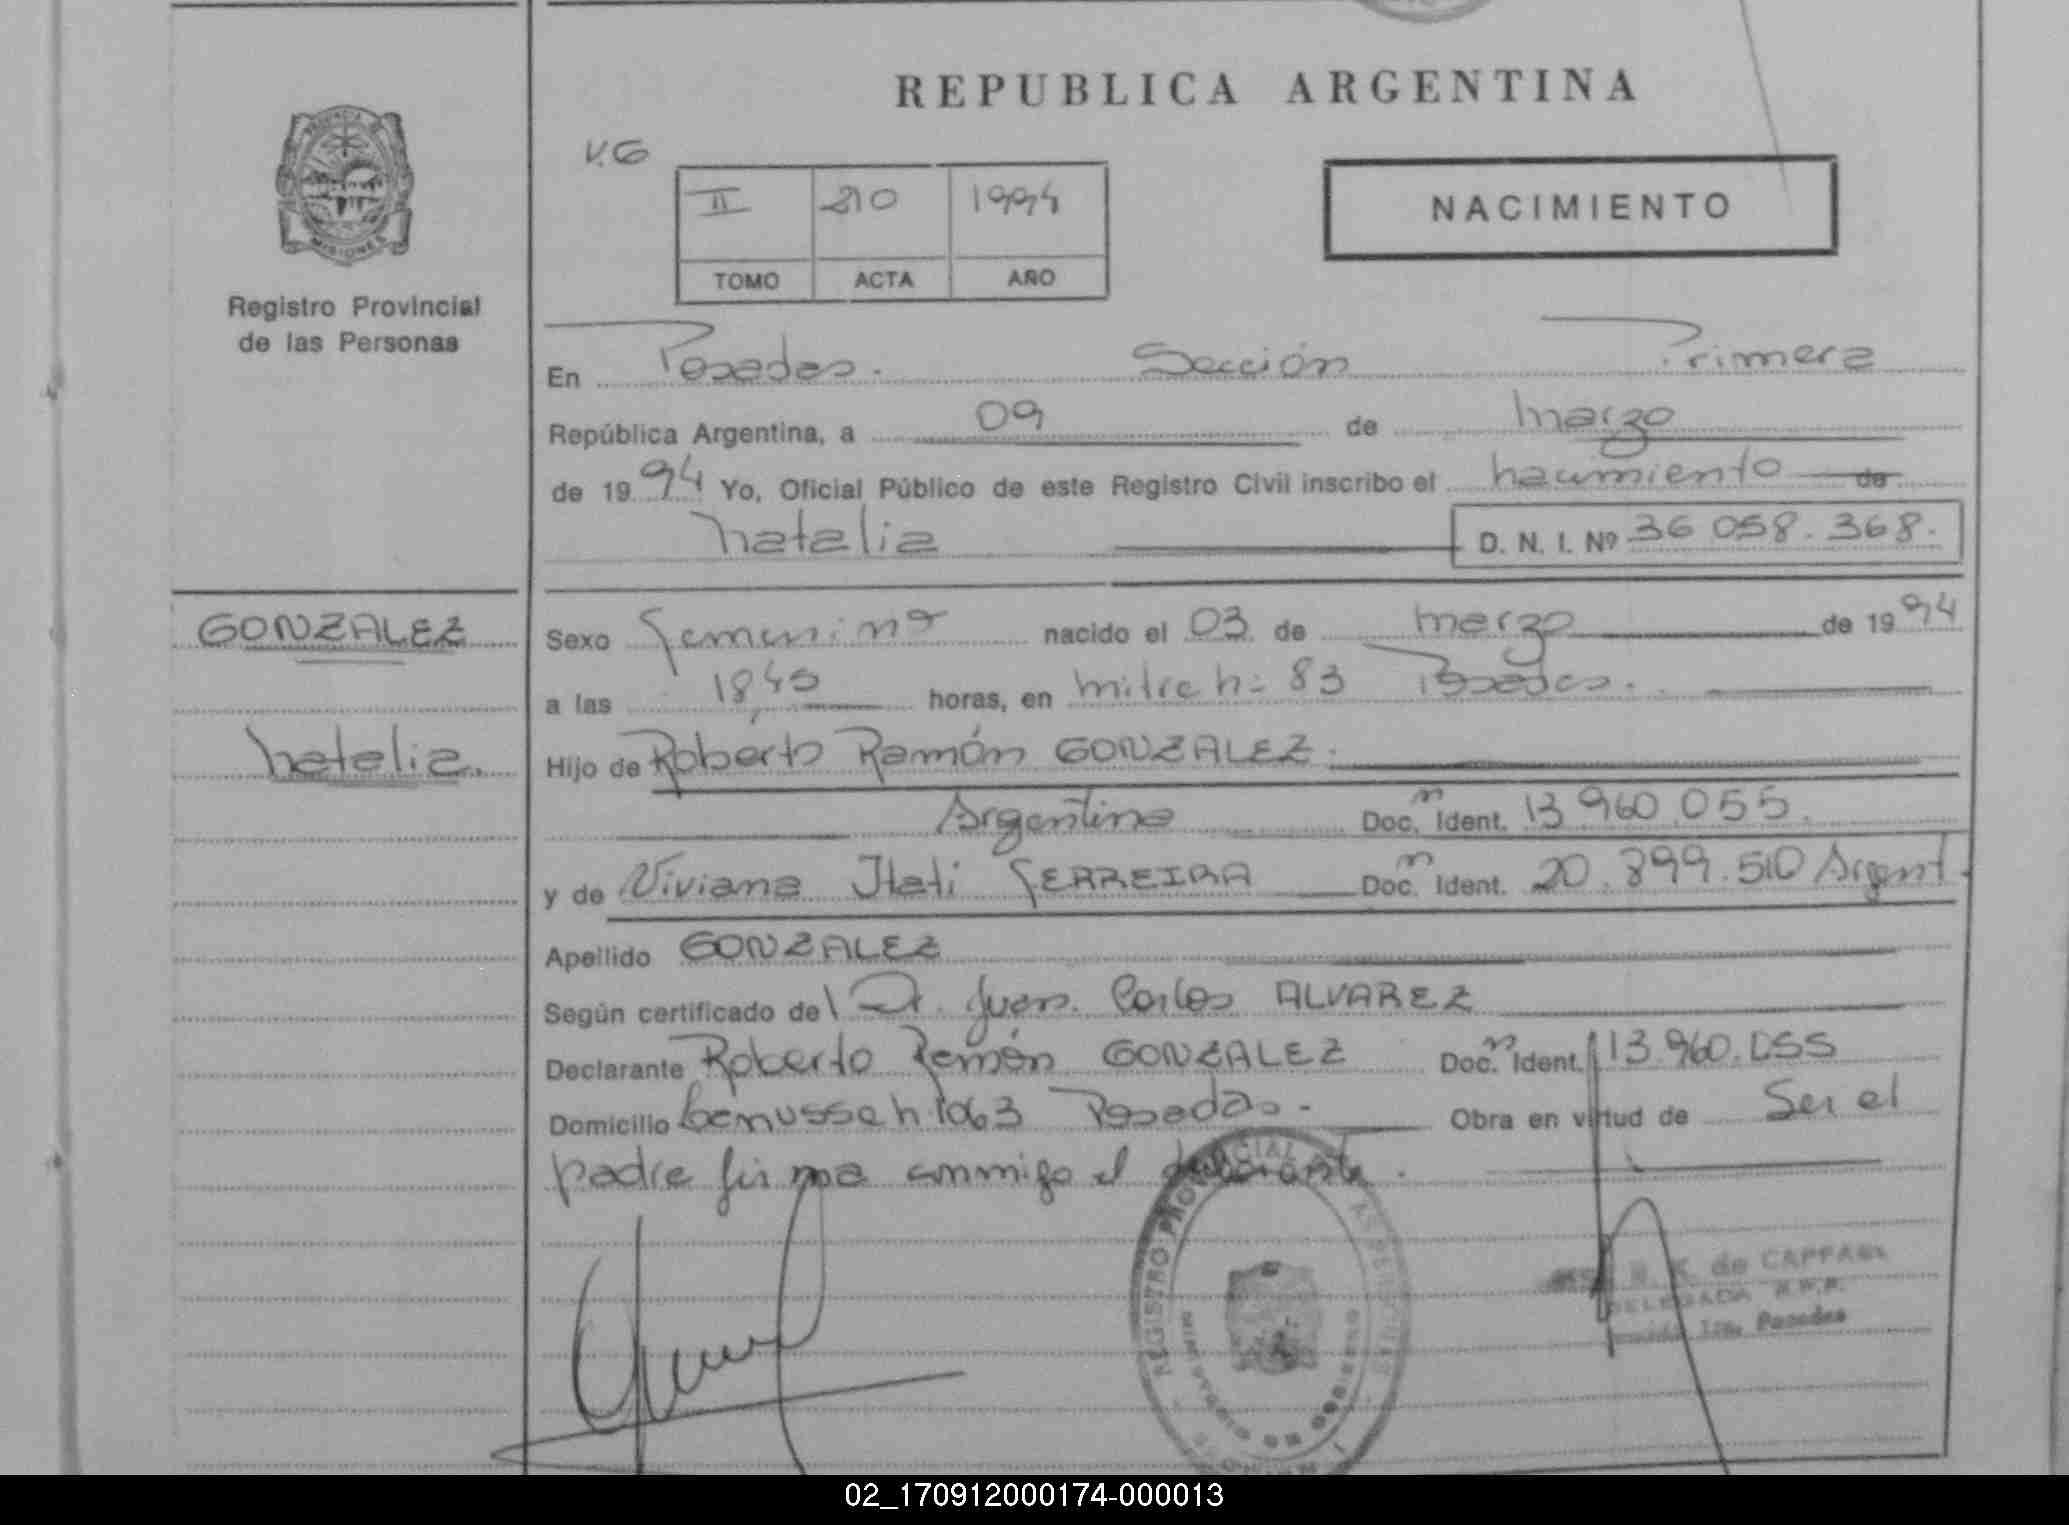 REPUBLICA ARGENTINA
PROVINCIA DE
MISIONES
Registro Provincial
de las Personas
V.G
II 210 1994
TOMO ACTA AÑO
NACIMIENTO
En Posadas. Sección Primera
República Argentina, a 09 de marzo
de 1994 Yo, Oficial Público de este Registro Civil inscribo el nacimiento de
Natalia D. N. I. Nº 36 058. 368.
GONZALEZ
Natalia.
Sexo Femenino nacido el 03 de marzo de 1994
a las 18,45 horas, en Mitre n: 83 Posadas.
Hijo de Roberto Ramón GONZALEZ.
Argentino Doc. n Ident. 13 960.055.
y de Viviana Itati FERREIRA Doc. n Ident. 20.899.510 Argent.
Apellido GONZALEZ
Según certificado del Dr. Juan Carlos ALVAREZ
Declarante Roberto Ramón GONZALEZ Doc. n Ident. 13.960.055
Domicilio n 1063 Posadas. Obra en virtud de Ser el
padre firma conmigo el declarante.
REGISTRO PROVINCIAL DE LAS PERSONAS
MINISTERIO DE GOBIERNO
de CAFFARE
DELEGADA R.P.P.
1ra. Posadas
02_170912000174-000013